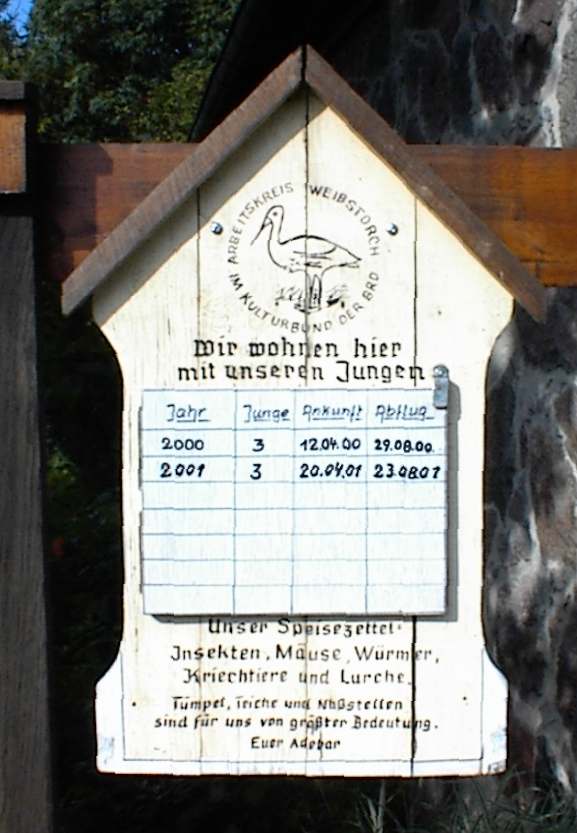 ARBEITSKREIS WEIßSTORCH
IM KULTURBUND DER BRD
Wir wohnen hier
mit unseren Jungen
Jahr Junge Ankunft Abflug
2000 3 12.04.00 29.08.00.
2001 3 20.04.01 23.08.01
Unser Speisezettel:
Insekten, Mäuse, Würmer,
Kriechtiere und Lurche.
Tümpel, Teiche und Naßstellen
sind für uns von größter Bedeutung.
Euer Adebar